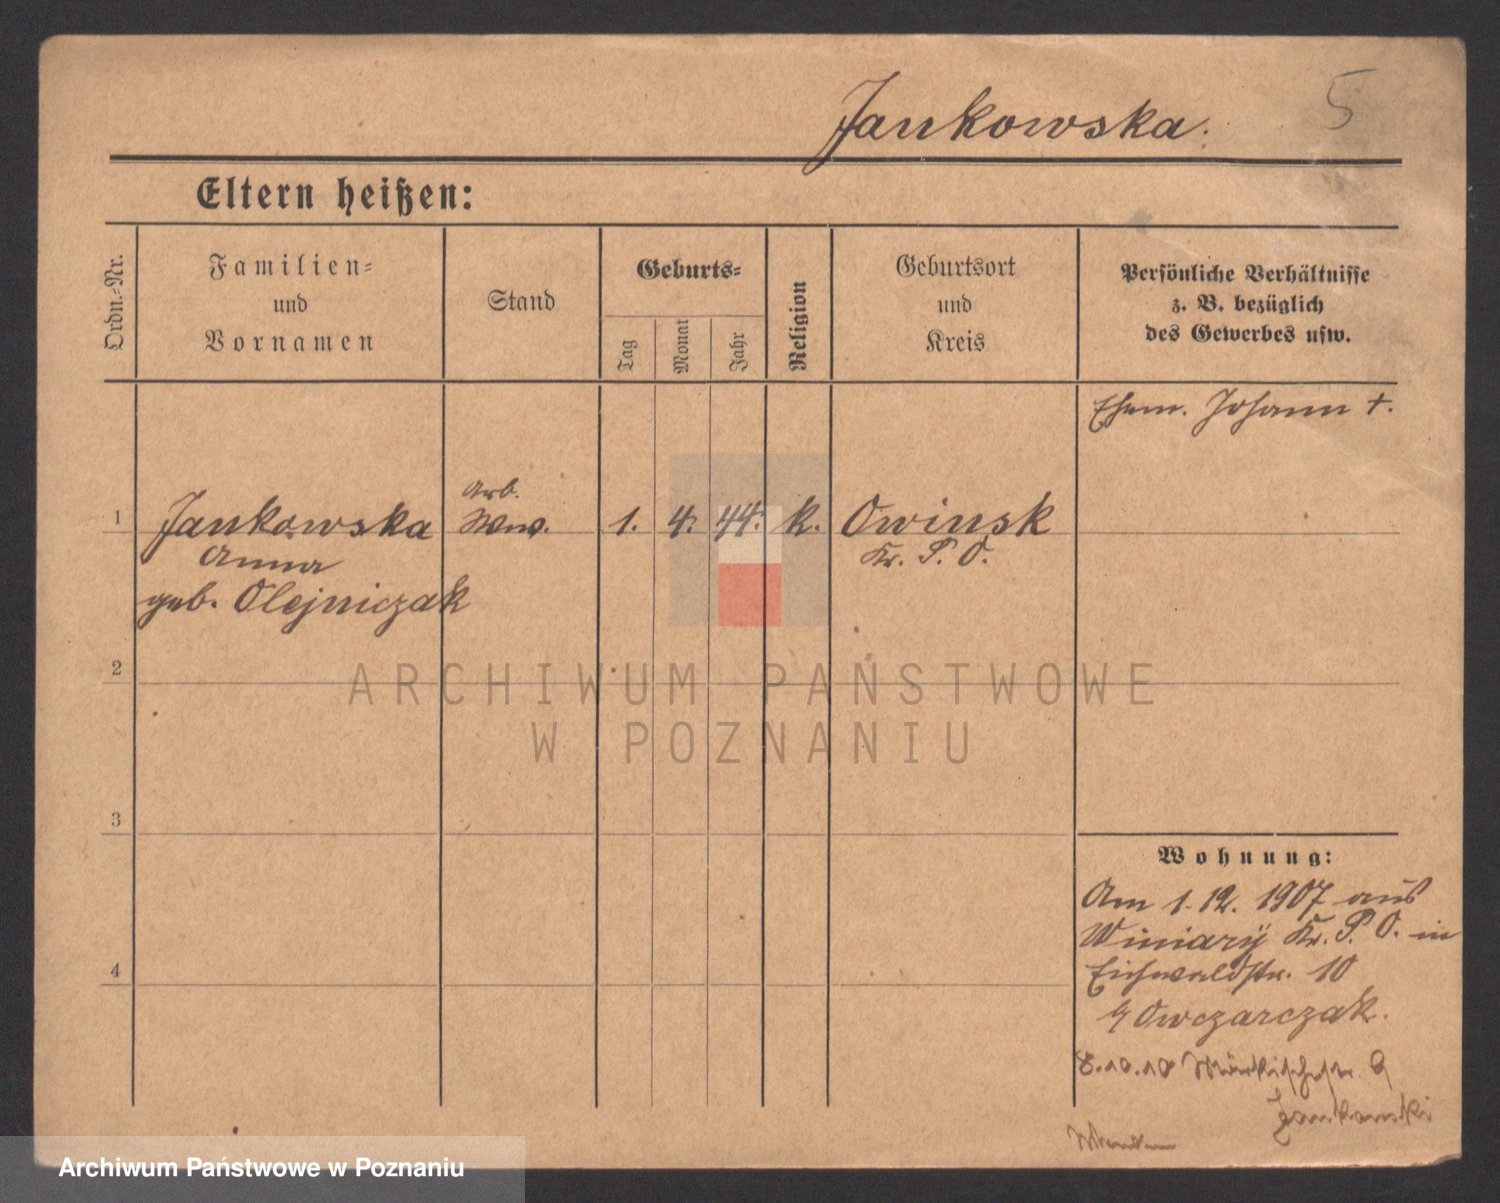 Jankowska.
5
Eltern heißen:
Ordn.-Nr.
Familien-
und
Vornamen
Stand
Geburts-
Tag
Monat
Jahr
Religion
Geburtsort
und
Kreis
Persönliche Verhältnisse
z. B. bezüglich
des Gewerbes usw.
Ehem. Johann †.
1 Jankowska Arb. Ww. 1. 4. 44. k. Owinsk
Anna Kr. P. O.
geb. Olejniczak
2
3
4
ARCHIWUM PAŃSTWOWE
W POZNANIU
Wohnung:
Am 1.12.1907 aus
Winiary Kr. P. O. in
Eichwaldstr. 10
Owczarczak.
8.10.10 Märkischestr. 9
Jankowski
Wenden
Archiwum Państwowe w Poznaniu